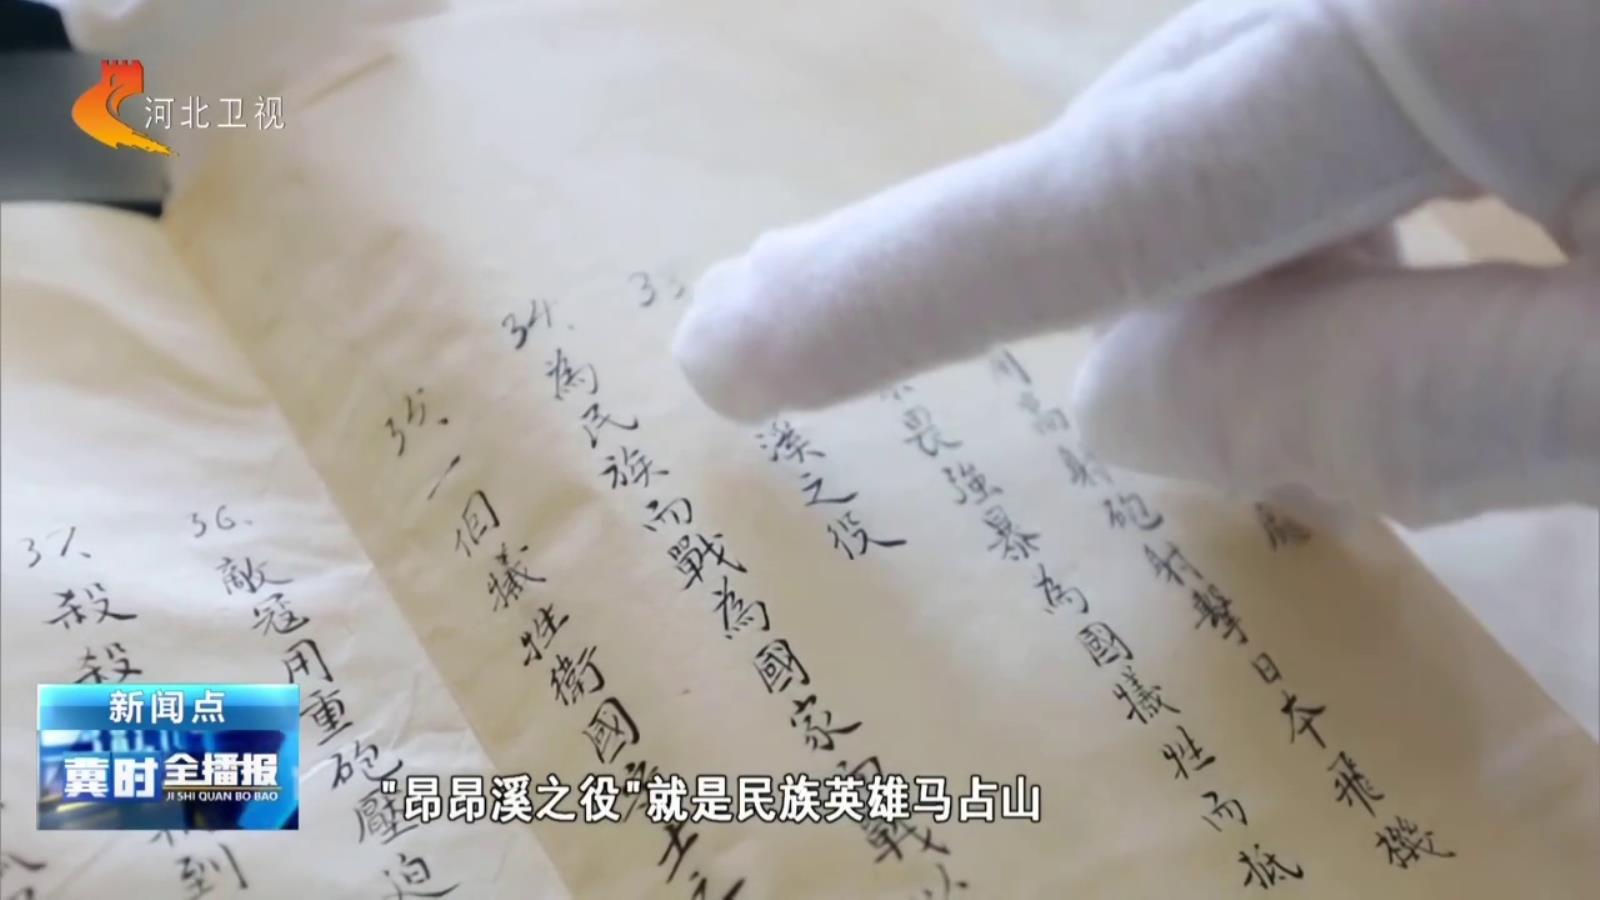 河北卫视
處
用高射砲射擊日本飛機
畏強暴為國犧牲而抵
33
溪之役
34. 為民族而戰為國家而戰以
35. 一個犧牲衛國
36. 敵寇用重砲壓迫
37. 殺殺
到
新闻点
冀时全播报
JI SHI QUAN BO BAO
"昂昂溪之役"就是民族英雄马占山